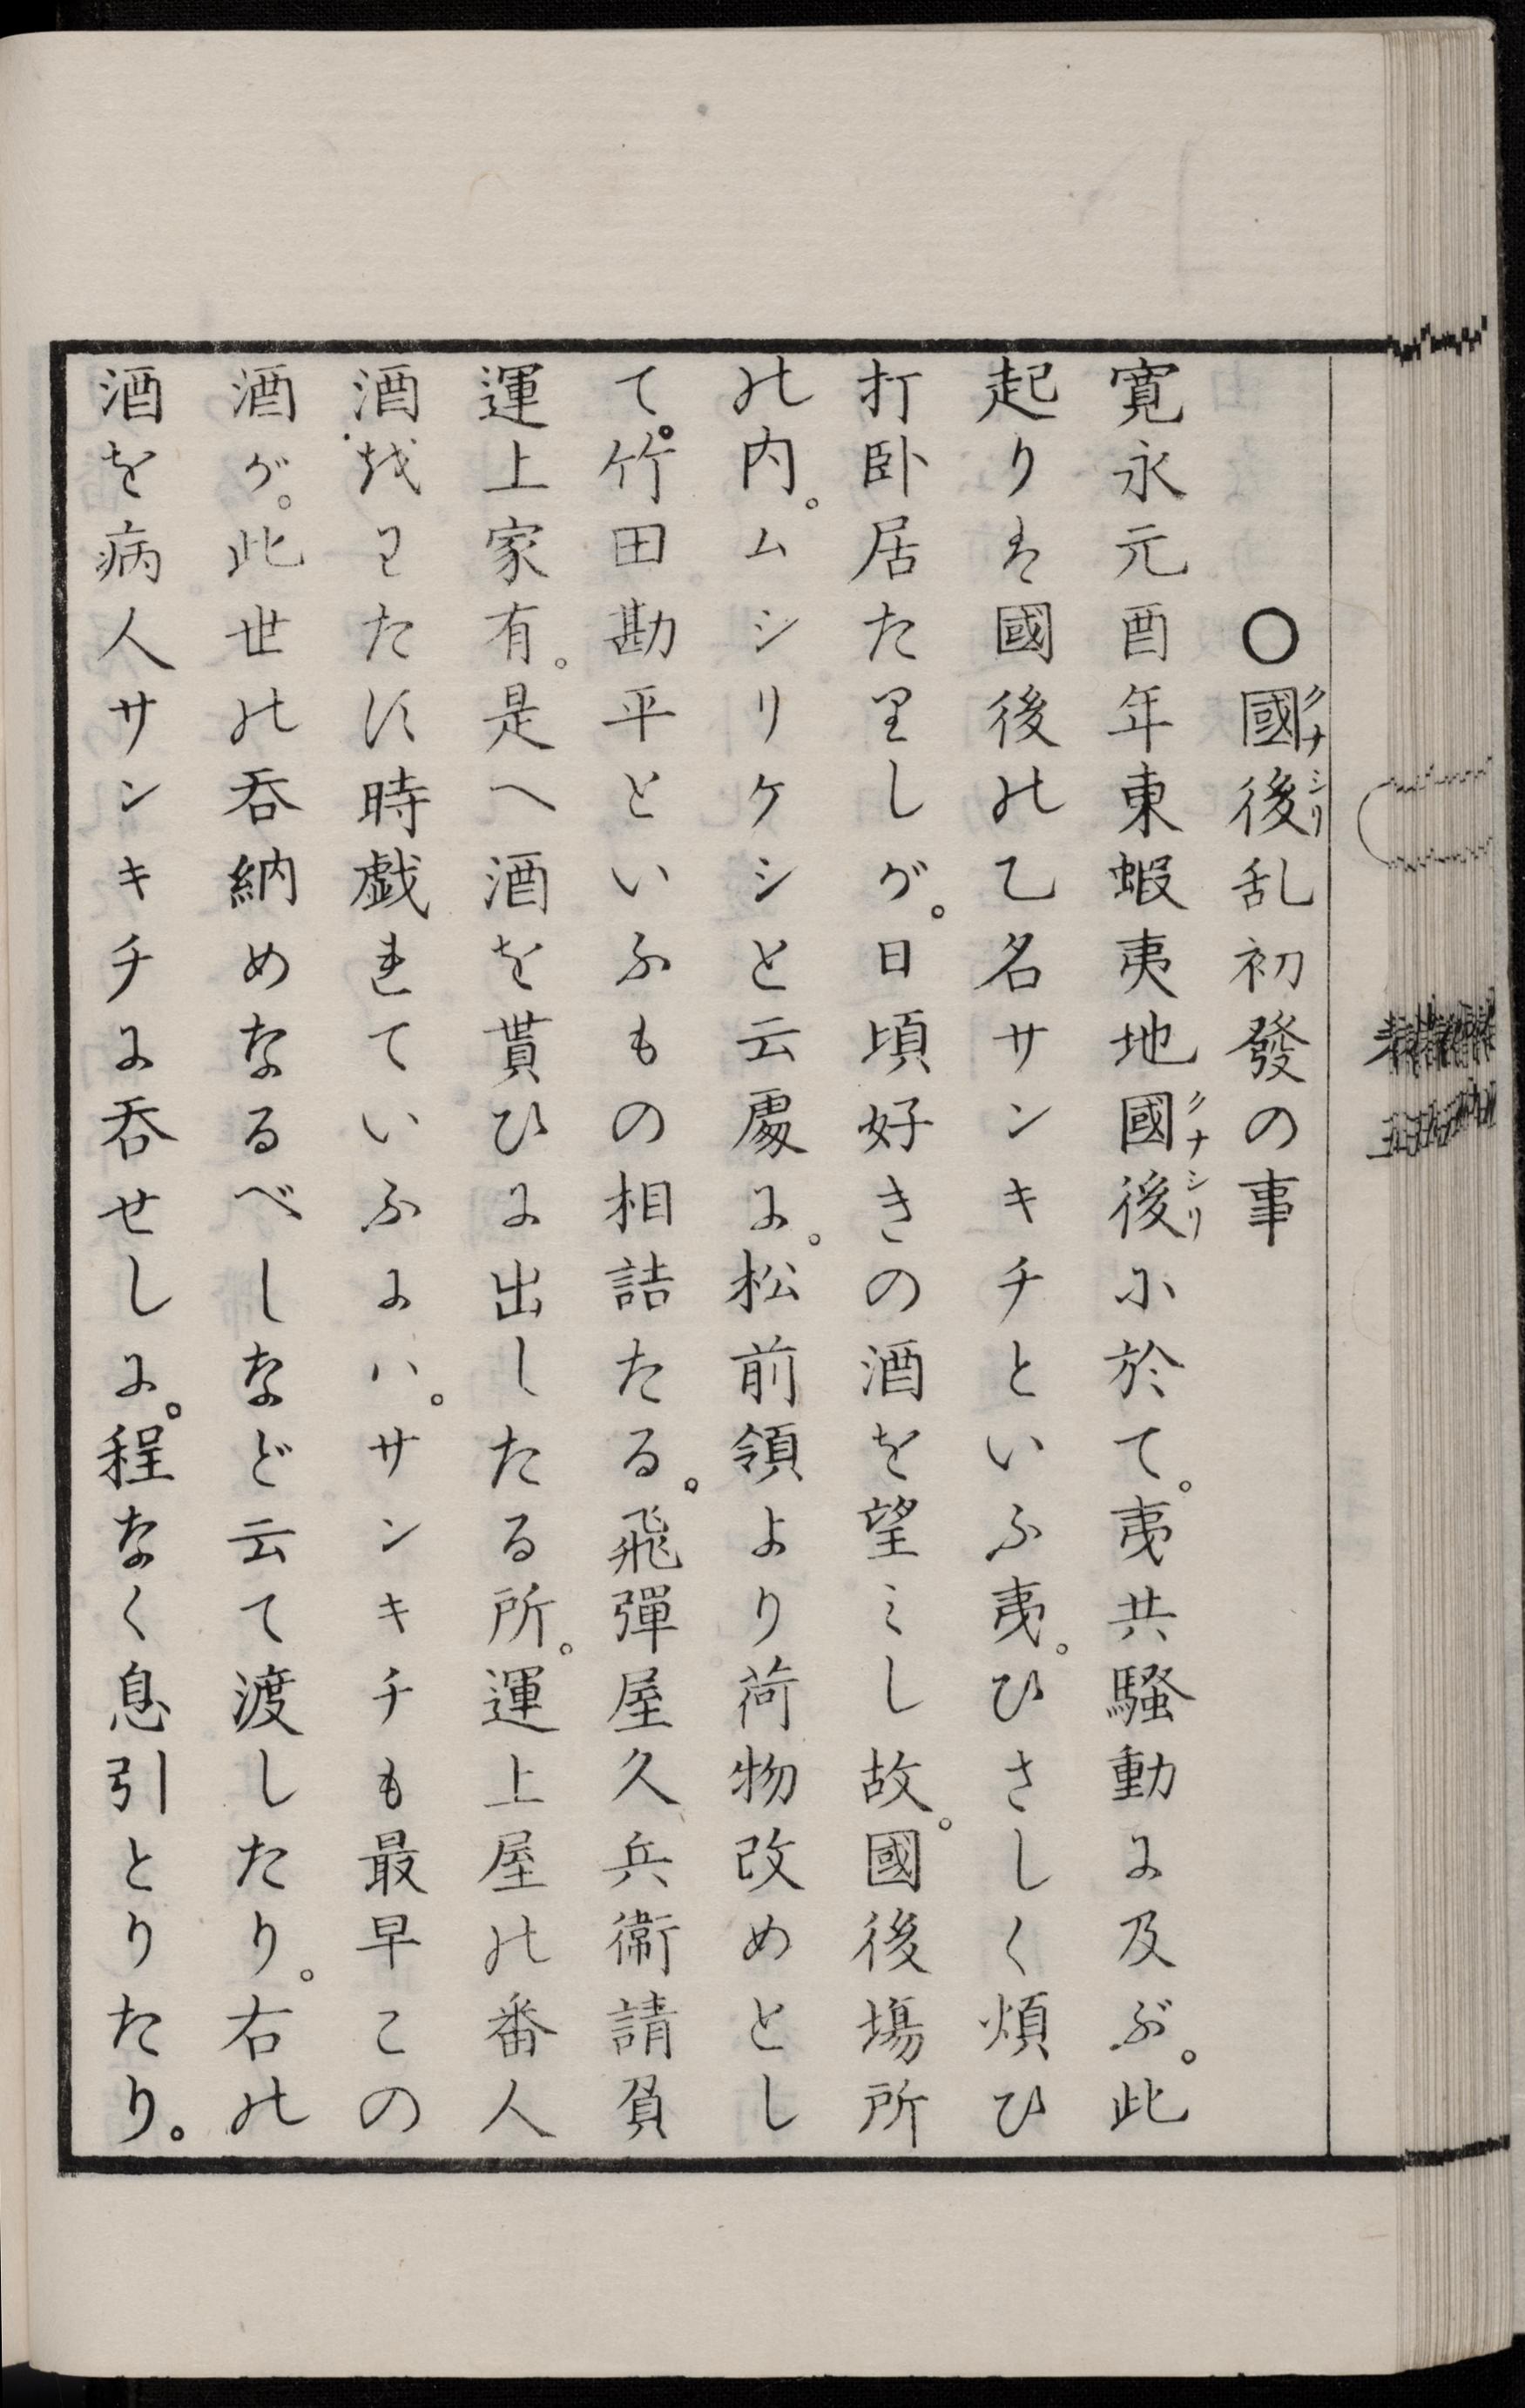 〇國後乱初發の事
クナシリ
寛永元酉年東蝦夷地國後小於て。夷共騒動に及ぶ。此
クナシリ
起りは國後の乙名サンキチといふ夷。ひさしく煩ひ
打臥居たりしが。日頃好きの酒を望ミし故。國後塲所
の内。ムシリケシと云處に。松前領より荷物改めとし
て。竹田勘平といふもの相詰たる。飛彈屋久兵衞請負
運上家有。是へ酒を貰ひに出したる所。運上屋の番人
酒越わたす時戯れていふにハ。サンキチも最早この
酒が。此世の呑納めなるべしなど云て渡したり。右の
酒を病人サンキチに呑せしに。程なく息引とりたり。